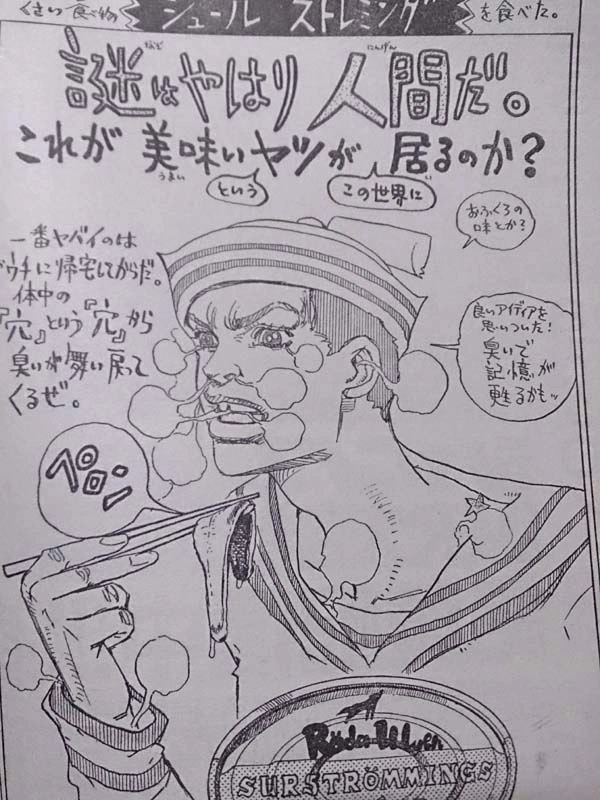 くさい食べ物 シュールストレミング を食べた。
謎はやはり人間だ。
なぞ にんげん
これが美味いヤツが居るのか?
うまい い
という この世界に
おふくろの
味とか?
一番ヤバイのは
ウチに帰宅してからだ。
体中の
『穴』という『穴』から
臭いが舞い戻って
くるぜ。
良いアイディアを
思いついた!
臭いで
記憶が
甦るかもッ
ペロン
SURSTRÖMMINGS